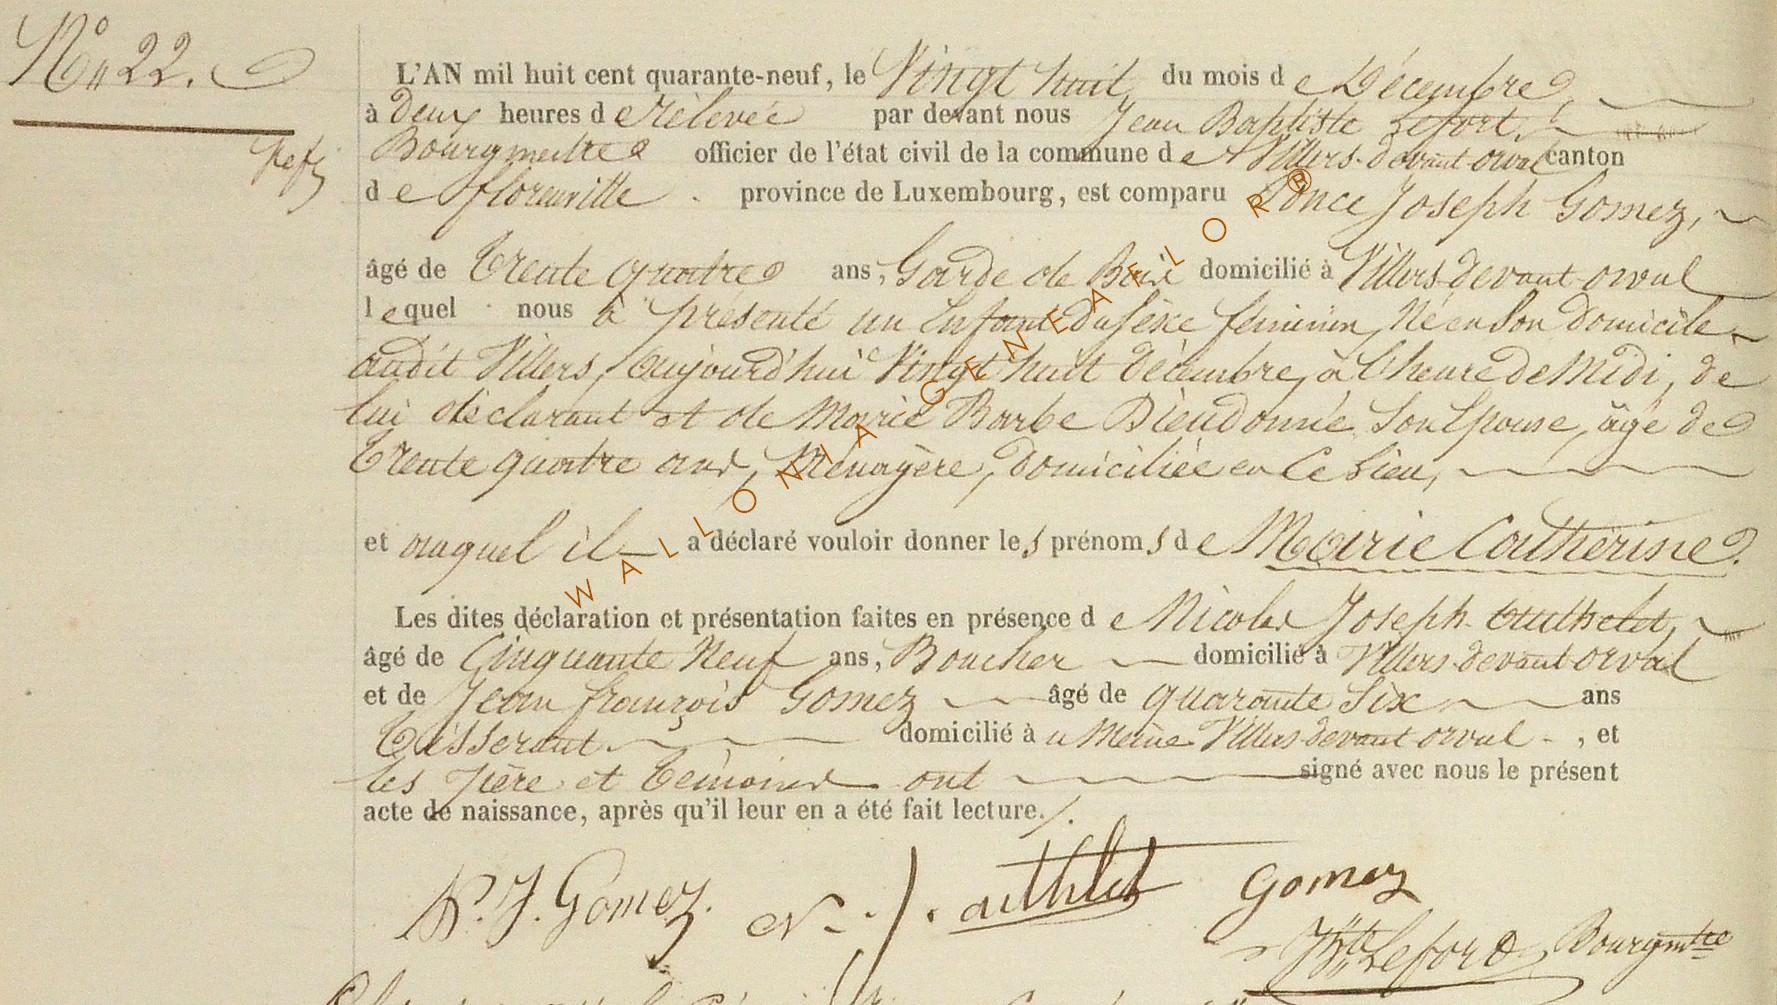 N° 22.
L'AN mil huit cent quarante-neuf, le Vingt huit du mois de Décembre,
à deux heures de rélevée par devant nous Jean Baptiste Lefort,
Bourgmestre officier de l'état civil de la commune de Villers-devant-orval canton
de florenville province de Luxembourg, est comparu Ponce Joseph Gomez,
âgé de trente quatre ans, Garde de Bois domicilié à Villers devant orval
lequel nous à présenté un Enfant du sèxe féminin, Né en son domicile
audit Villers, aujourd'hui Vingt huit décembre, à l'heure de Midi, de
lui déclarant et de Marie Barbe Dieudonnée son Epouse, âgé de
trente quatre ans, Ménagère, domiciliée en ce lieu,
et auquel il a déclaré vouloir donner les prénoms de Marie Catherine.
Les dites déclaration et présentation faites en présence de Nicolas Joseph
âgé de Cinquante Neuf ans, Boucher domicilié à Villers devant orval
et de Jean françois Gomez âgé de quarante six ans
Tisserant domicilié à Villers devant orval, et
les père et témoins ont signé avec nous le présent
acte de naissance, après qu'il leur en a été fait lecture./.
P. J. Gomez. N. J. authlet Gomez
JBte Lefort Bourgmtre
WALLONIA GENEAFLOR®